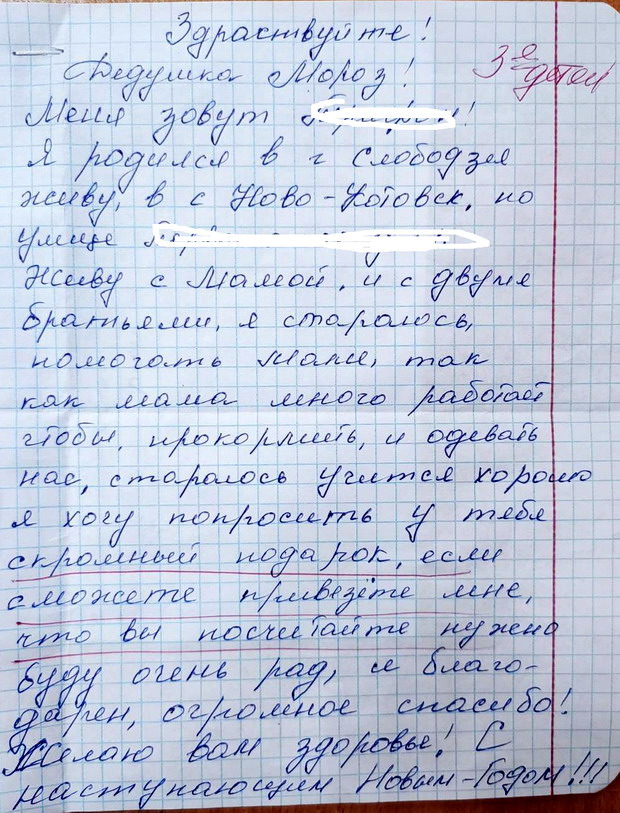 Здраствуйте!
Дедушка Мороз!
3е детей
Меня зовут
Я родился в г Слободзея
живу, в с Ново-Котовск, по
улице
Живу с Мамой, и с двумя
братьями, я стараюсь,
помогать мами, так
как мама много работает
чтобы, прокормить, и одевать
нас, стараюсь учится хорошо
я хочу попросить у тебя
скромный подарок, если
сможете привезёте мне,
что вы посчитайте нужено
буду очень рад, и благо-
дарен, огромное спасибо!
Желаю вам здоровье! С
наступающим Новым-Годом!!!